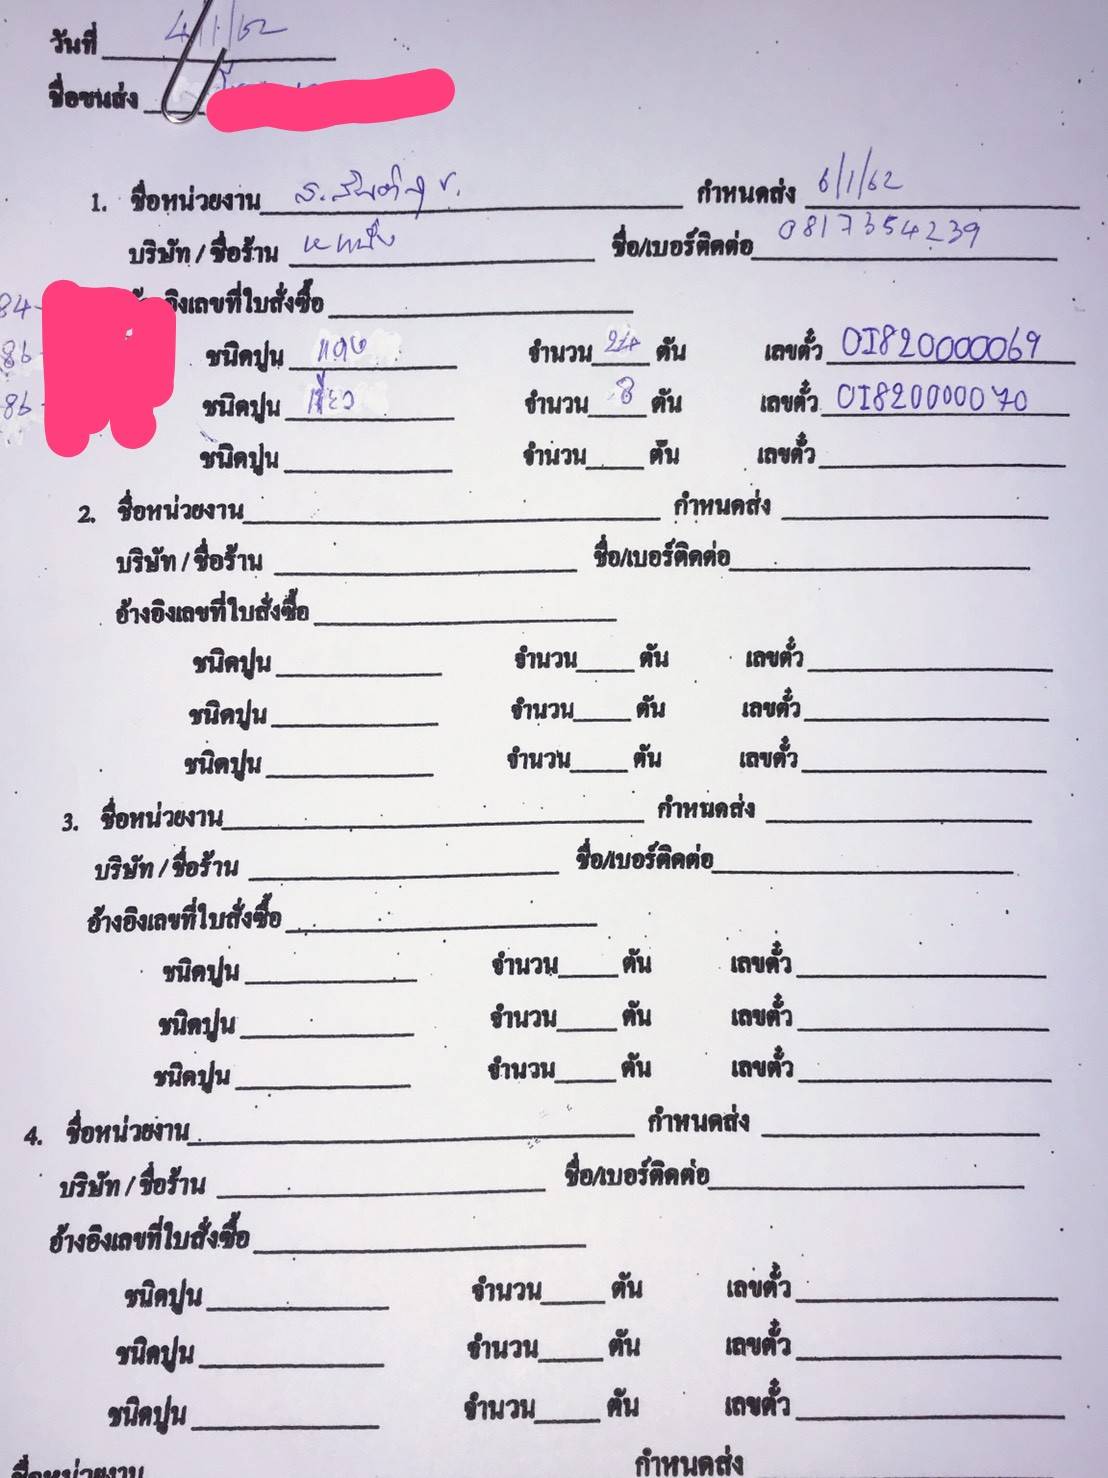 วันที่ 4/1/62
ชื่อขนส่ง
1. ชื่อหน่วยงาน กำหนดส่ง 6/1/62
บริษัท / ชื่อร้าน ชื่อ/เบอร์ติดต่อ 0817354239
อ้างอิงเลขที่ใบสั่งซื้อ
84-
86 ชนิดปูน แดง จำนวน 24 ตัน เลขตั๋ว OI820000069
86- ชนิดปูน เขียว จำนวน 8 ตัน เลขตั๋ว OI820000070
ชนิดปูน จำนวน ตัน เลขตั๋ว
2. ชื่อหน่วยงาน กำหนดส่ง
บริษัท / ชื่อร้าน ชื่อ/เบอร์ติดต่อ
อ้างอิงเลขที่ใบสั่งซื้อ
ชนิดปูน จำนวน ตัน เลขตั๋ว
ชนิดปูน จำนวน ตัน เลขตั๋ว
ชนิดปูน จำนวน ตัน เลขตั๋ว
3. ชื่อหน่วยงาน กำหนดส่ง
บริษัท / ชื่อร้าน ชื่อ/เบอร์ติดต่อ
อ้างอิงเลขที่ใบสั่งซื้อ
ชนิดปูน จำนวน ตัน เลขตั๋ว
ชนิดปูน จำนวน ตัน เลขตั๋ว
ชนิดปูน จำนวน ตัน เลขตั๋ว
4. ชื่อหน่วยงาน กำหนดส่ง
บริษัท / ชื่อร้าน ชื่อ/เบอร์ติดต่อ
อ้างอิงเลขที่ใบสั่งซื้อ
ชนิดปูน จำนวน ตัน เลขตั๋ว
ชนิดปูน จำนวน ตัน เลขตั๋ว
ชนิดปูน จำนวน ตัน เลขตั๋ว
ชื่อหน่วยงาน กำหนดส่ง